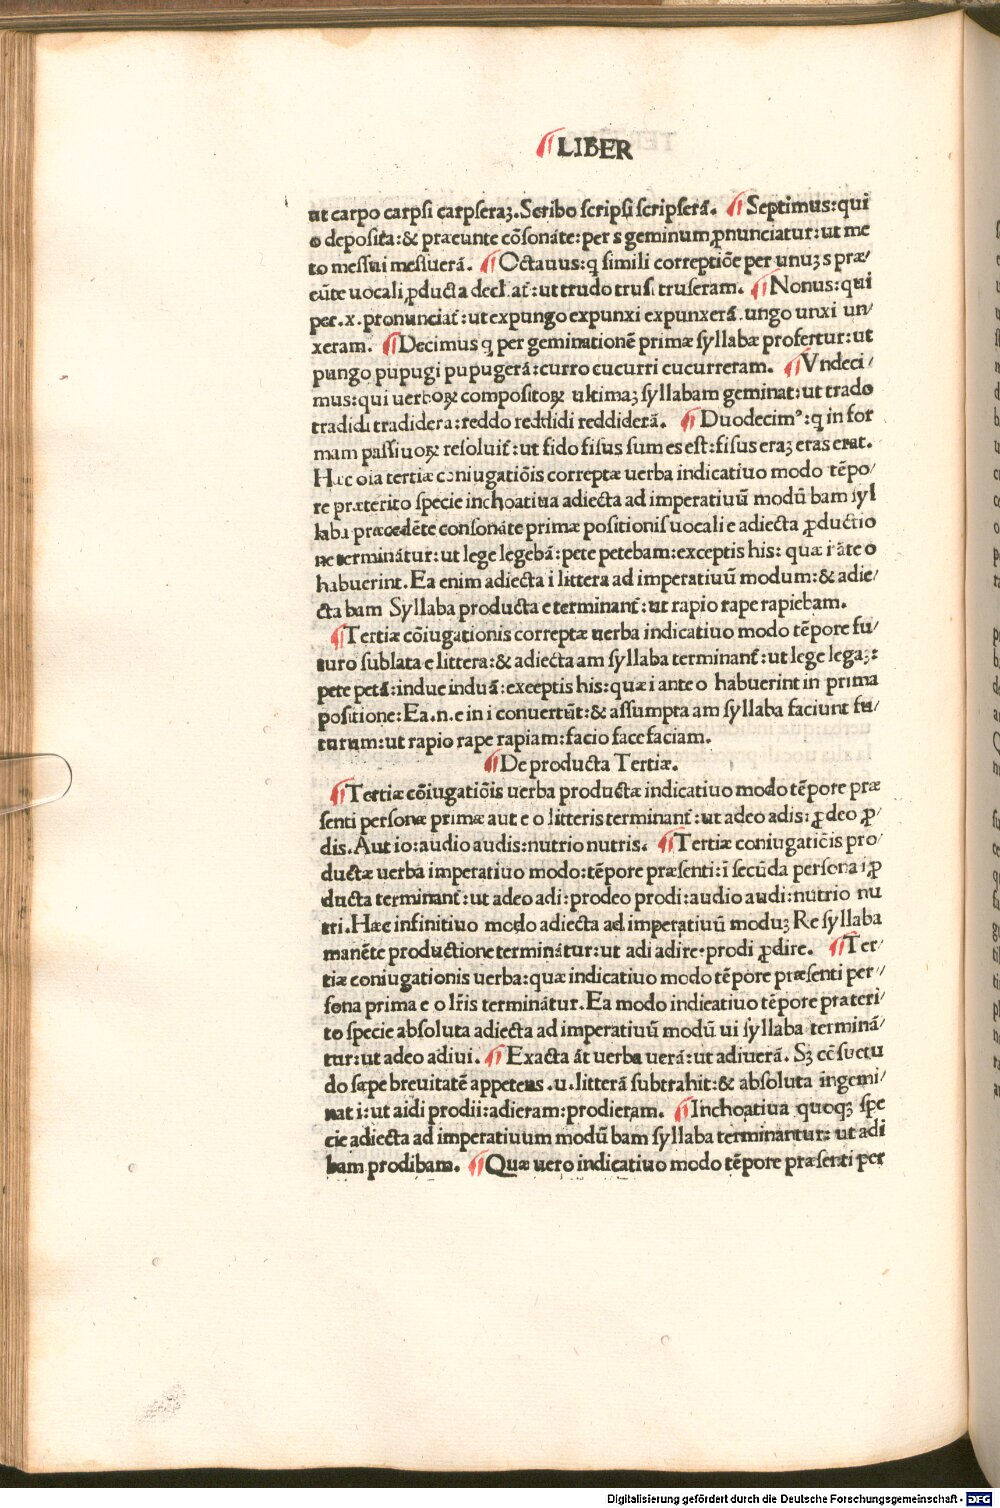 ¶LIBER
ut carpo carpsi carpseraꝫ. Scribo scripsi scripserã. ¶Septimus: qui
o deposita: & præeunte cõsonãte: per s geminum ꝓnunciatur: ut me
to messui messuerã. ¶Octauus: q̃ simili correptiõe per unuꝫ s præ/
eũte uocali ꝓducta declĩat̃: ut trudo trusi truseram. ¶Nonus: qui
per .x. pronunciat̃: ut expungo expunxi expunxerã. ungo unxi un/
xeram. ¶Decimus q̃ per geminationẽ primæ syllabæ profertur: ut
pungo pupugi pupugerã: curro cucurri cucurreram. ¶Vndeci/
mus: qui uerboꝝ compositoꝝ ultimaꝫ syllabam geminat: ut trado
tradidi tradidera: reddo reddidi reddiderã. ¶Duodecimꝰ: q̃ in for
mam passiuoꝝ resoluit̃: ut fido fisus sum es est: fisus eraꝫ eras erat.
Hæc oĩa tertiæ coniugatiõis correptæ uerba indicatiuo modo tẽpo/
re præterito specie inchoatiua adiecta ad imperatiuũ modũ bam syl
laba præcedẽte consonãte primæ positionis uocali e adiecta ꝓductio
ne terminãtur: ut lege legebã: pete petebam: exceptis his: quæ i ãte o
habuerint. Ea enim adiecta i littera ad imperatiuũ modum: & adie/
cta bam Syllaba producta e terminant̃: ut rapio rape rapiebam.
¶Tertiæ cõiugationis correptæ uerba indicatiuo modo tẽpore fu/
turo sublata e littera: & adiecta am syllaba terminant̃: ut lege legaꝫ:
pete petã: indue induã: exceptis his: quæ i ante o habuerint in prima
positione: Ea .n. e in i conuertũt: & assumpta am syllaba faciunt fu/
turum: ut rapio rape rapiam: facio face faciam.
¶De producta Tertiæ.
¶Tertiæ cõiugatiõis uerba productæ indicatiuo modo tẽpore præ
senti personæ primæ aut e o litteris terminant̃: ut adeo adis: ꝓdeo ꝓ/
dis. Aut io: audio audis: nutrio nutris. ¶Tertiæ coniugatiõis pro/
ductæ uerba imperatiuo modo: tẽpore præsenti: ĩ secũda persona i ꝓ
ducta terminant̃: ut adeo adi: prodeo prodi: audio audi: nutrio nu
tri. Hæc infinitiuo modo adiecta ad imperatiuũ moduꝫ Re syllaba
manẽte productione terminãtur: ut adi adire: prodi ꝓdire. ¶Ter/
tiæ coniugationis uerba: quæ indicatiuo modo tẽpore præsenti per/
sona prima e o lr̃is terminãtur. Ea modo indicatiuo tẽpore præteri/
to specie absoluta adiecta ad imperatiuũ modũ ui syllaba terminã/
tur: ut adeo adiui. ¶Exacta ãt uerba uerã: ut adiuerã. Sꝫ cõsuetu
do sæpe breuitatẽ appetens .u. litterã subtrahit: & absoluta ingemi/
nat i: ut adii prodii: adieram: prodieram. ¶Inchoatiua quoqꝫ spe
cie adiecta ad imperatiuum modũ bam syllaba terminantur: ut adi
bam prodibam. ¶Quæ uero indicatiuo modo tẽpore præsenti per
Digitalisierung gefördert durch die Deutsche Forschungsgemeinschaft - DFG